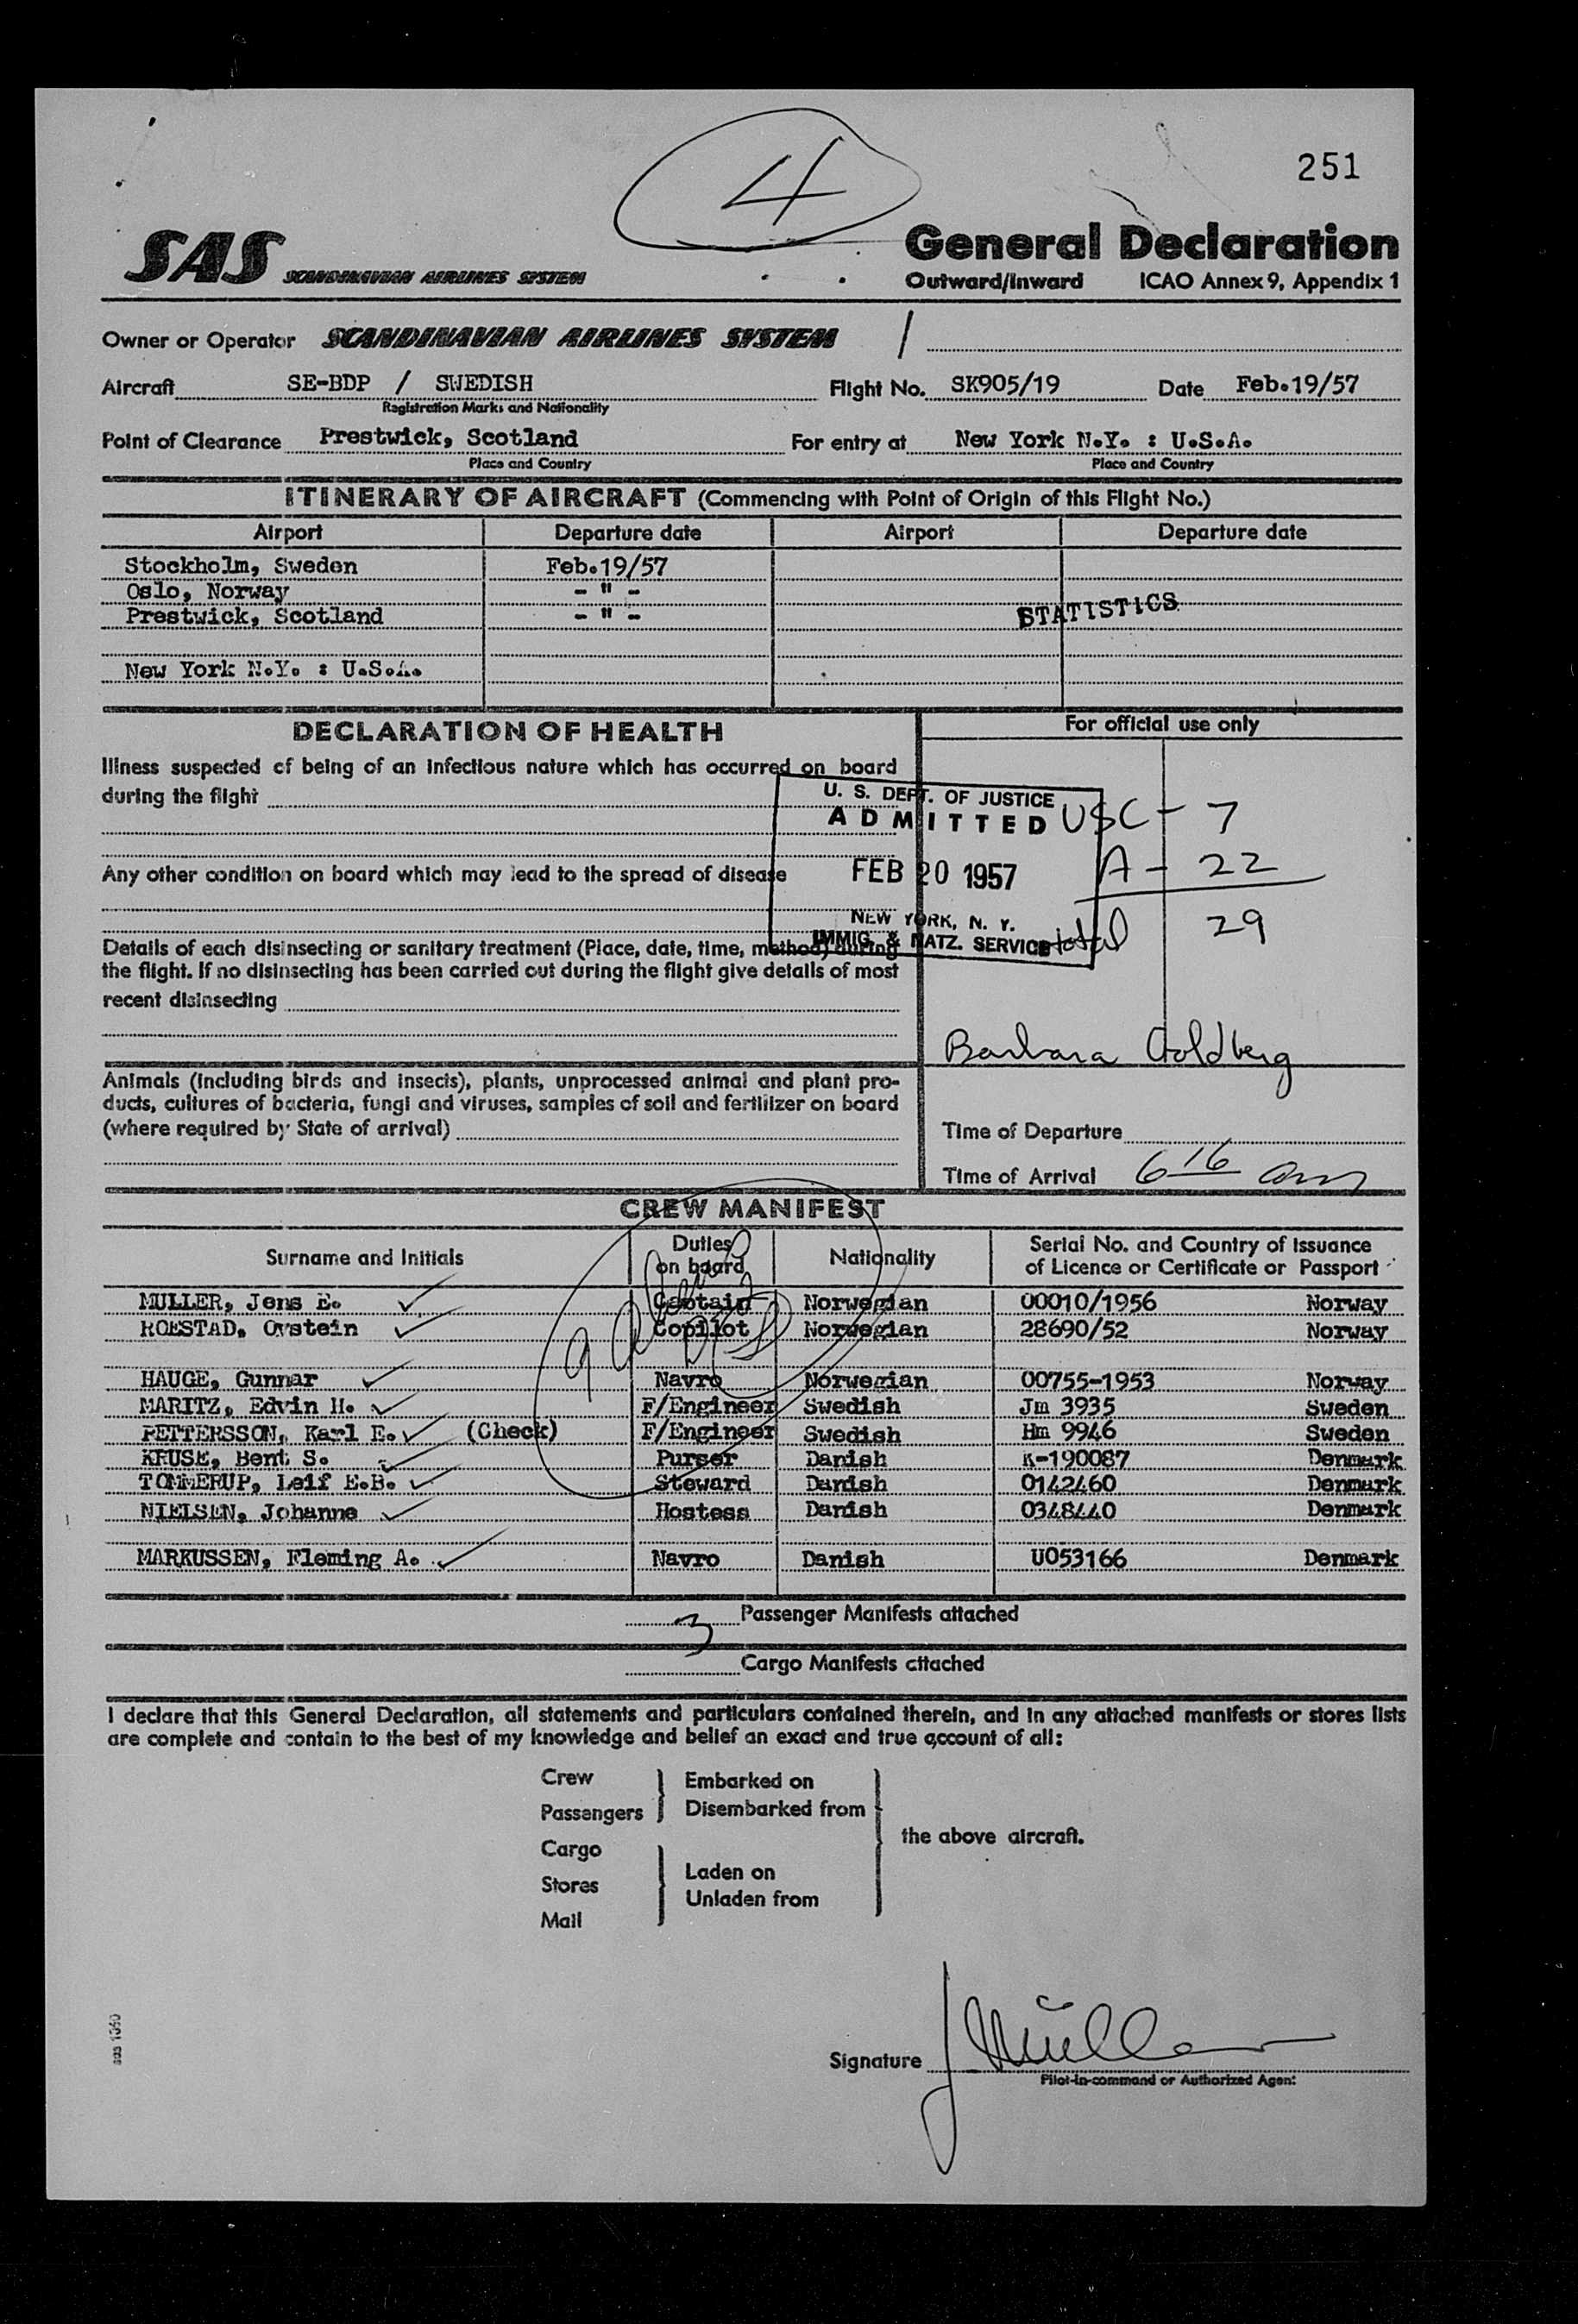 4
251
SAS SCANDINAVIAN AIRLINES SYSTEM
General Declaration
Outward/Inward ICAO Annex 9, Appendix 1
Owner or Operator SCANDINAVIAN AIRLINES SYSTEM /
Aircraft SE-BDP / SWEDISH Flight No. SK905/19 Date Feb.19/57
Registration Marks and Nationality
Point of Clearance Prestwick, Scotland For entry at New York N.Y. : U.S.A.
Place and Country Place and Country
ITINERARY OF AIRCRAFT (Commencing with Point of Origin of this Flight No.)
Airport Departure date Airport Departure date
Stockholm, Sweden Feb.19/57
Oslo, Norway - " -
Prestwick, Scotland - " -
STATISTICS
New York N.Y. : U.S.A.
DECLARATION OF HEALTH
For official use only
Illness suspected of being of an infectious nature which has occurred on board
during the flight
U. S. DEPT. OF JUSTICE
ADMITTED
USC - 7
A - 22
FEB 20 1957
Any other condition on board which may lead to the spread of disease
NEW YORK, N. Y.
IMMIG. & NATZ. SERVICE
total 29
Details of each disinsecting or sanitary treatment (Place, date, time, method) during
the flight. If no disinsecting has been carried out during the flight give details of most
recent disinsecting
Barbara Goldberg
Animals (including birds and insects), plants, unprocessed animal and plant pro-
ducts, cultures of bacteria, fungi and viruses, samples of soil and fertilizer on board
(where required by State of arrival)
Time of Departure
Time of Arrival 6 16 am
CREW MANIFEST
Surname and Initials Duties on board Nationality Serial No. and Country of Issuance
of Licence or Certificate or Passport
MULLER, Jens E. Captain Norwegian 00010/1956 Norway
ROESTAD, Oystein Copilot Norwegian 28690/52 Norway
HAUGE, Gunnar Navro Norwegian 00755-1953 Norway
MARITZ, Edvin H. F/Engineer Swedish Jm 3935 Sweden
PETTERSSON, Karl E. (Check) F/Engineer Swedish Hm 9946 Sweden
KRUSE, Bent S. Purser Danish K-190087 Denmark
TOMMERUP, Leif E.B. Steward Danish 0142460 Denmark
NIELSEN, Johanne Hostess Danish 0348440 Denmark
MARKUSSEN, Fleming A. Navro Danish U053166 Denmark
3 Passenger Manifests attached
Cargo Manifests attached
I declare that this General Declaration, all statements and particulars contained therein, and in any attached manifests or stores lists
are complete and contain to the best of my knowledge and belief an exact and true account of all:
Crew Embarked on
Passengers Disembarked from
the above aircraft.
Cargo
Laden on
Stores
Unladen from
Mail
Signature J Müller
Pilot-in-command or Authorized Agent